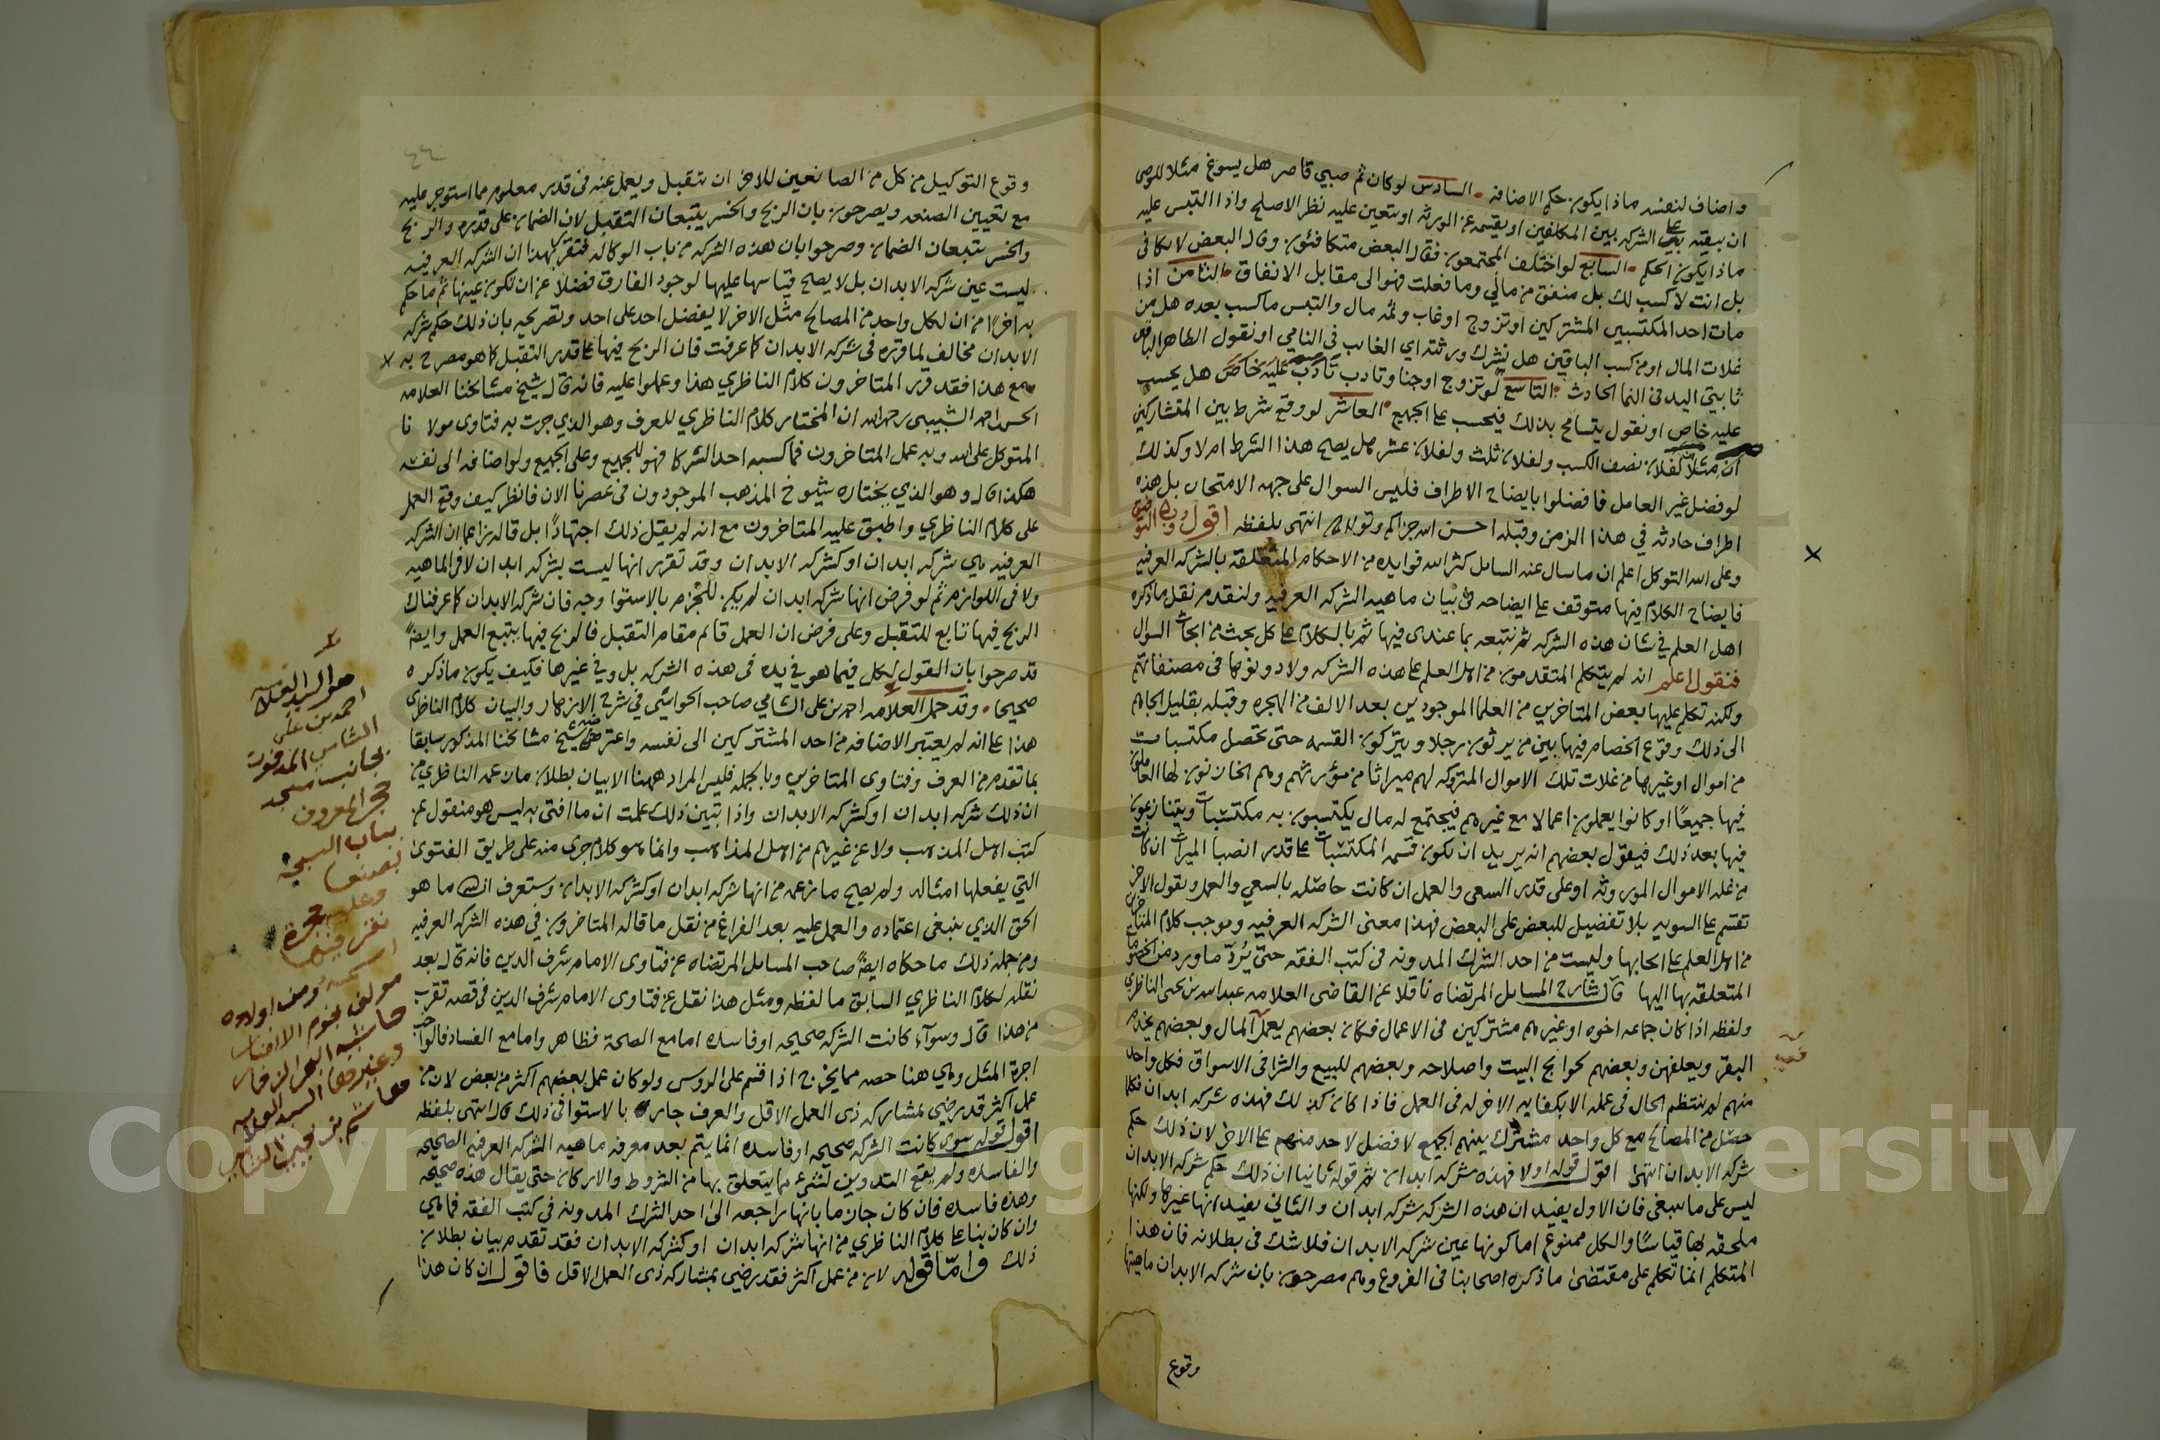 واضاف لنفسه ماذا يكون حكم الاضافه السادس لو كان ثم صبي قاصر هل يسوغ مثلا للوصي
ان يبقيه على الشركه بين المكلفين او يقيمه عن الورثه او يتعين عليه نظر الاصلح واذا التبس عليه
ماذا يكون الحكم السابع لو اختلف المجتمعون فقال البعض متكافئون وقال البعض لا تكافى
بل انت لا كسب لك بل منفق من مالي وما فعلت فهو الى مقابل الانفاق الثامن اذا
مات احد المكتسبين المشتركين او تزوج او غاب وثمه مال والتبس ما كسب بعده هل من
غلات المال او من كسب الباقين هل نشرك ورثته اي الغائب في النامي او نقول الظاهر الباقين
ثابتي اليد في النما الحادث التاسع لو تزوج او جنا وتادب تادب عليه خاص هل يحسب
عليه خاص او نقول يتسامح بذلك فيحسب على الجميع العاشر لو وقع شرط بين المتشاركين
ان مثلا لفلان نصف الكسب ولفلان ثلث ولفلان عشر هل يصح هذا الشرط ام لا وكذلك
لو فضل غير العامل فافضلوا بايضاح الاطراف فليس السوال على جهه الامتحان بل هذه
اطراف حادثه في هذا الزمن وقبله احسن الله جزاكم وتولاكم انتهى بلفظه اقول وبالله التوفيق
وعلى الله التوكل اعلم ان ما سال عنه السايل كثر الله فوايده من الاحكام المتعلقه بالشركه العرفيه
فايضاح الكلام فيها متوقف على ايضاحه في بيان ماهيه الشركه العرفيه ولنقدم نقل ما ذكره
اهل العلم في شان هذه الشركه ثم نتبعه بما عندي فيها ثم بالكلام على كل بحث من ابحاث السوال
فنقول اعلم انه لم يتكلم المتقدمون من اهل العلم على هذه الشركه ولا دونوها في مصنفاتهم
ولكنه تكلم عليها بعض المتاخرين من العلما الموجودين بعد الالف من الهجره وقبله بقليل الجاهم
الى ذلك وقوع الخصام فيها بين من يرثون رجلا ويتركون القسمه حتى تحصل مكتسبات
من اموال او غيرها من غلات تلك الاموال المتروكه لهم ميراثا من مورثهم وهم الخازنون لها العاملون
فيها جميعا او كانوا يعملون اعمالا مع غيرهم فيجتمع له مال يكتسبون به مكتسبات ويتنازعون
فيها بعد ذلك فيقول بعضهم انه يريد ان يكون قسمه المكتسبات على قدر انصبا الميراث ان كانت
من غله الاموال الموروثه او على قدر السعي والعمل ان كانت حاصله بالسعي والعمل ويقول الاخر
تقسم على السويه بلا تفضيل للبعض على البعض فهذا معنى الشركه العرفيه وموجب كلام المتاخرين
من اهل العلم على احكامها وليست من احد الشرك المدونه في كتب الفقه حتى يُردّ ما ورد من الخصومات
المتعلقه بها اليها قال شارح المسايل المرتضاه ناقلا عن القاضي العلامه عبدالله بن يحيى الناظري
ولفظه اذا كان جماعه اخوه او غيرهم مشتركين في الاعمال فكان بعضهم يعمل المال وبعضهم يخدم
البقر ويعلفهن وبعضهم بحوايج البيت واصلاحه وبعضهم للبيع والشرا في الاسواق فكل واحد
منهم لم ينتظم الحال في عمله الا بكفايه الاخر له في العمل فاذا كان كذلك فهذه شركه ابدان فكلما
حصل من المصالح مع كل واحد مشترك بينهم الجميع لا فضل لاحد منهم على الاخر لان ذلك حكم
شركه الابدان انتهى اقول قوله اولا فهذه شركه ابدان ثم قوله ثانيا ان ذلك حكم شركه الابدان
ليس على ما ينبغي فان الاول يفيد ان هذه الشركه شركه ابدان والثاني يفيد انها غيرها ولكنها
ملحقه بها قياسًا والكل ممنوع اما كونها عين شركه الابدان فلا شك في بطلانه فان هذا
المتكلم انما تكلم على مقتضى ما ذكره اصحابنا في الفروع وهم مصرحون بان شركه الابدان ماهيتها
وقوع
وقوع التوكيل من كل من الصانعين للاخر ان يتقبل ويعمل عنه في قدر معلوم مما استوجر عليه
مع تعيين الصنعه ويصرحون بان الربح والخسر يتبعان التقبل لان الضمان على قدره والربح
والخسر يتبعان الضمان وصرحوا بان هذه الشركه من باب الوكاله فتقرر بهذا ان الشركه العرفيه
ليست عين شركه الابدان بل لا يصح قياسها عليها لوجود الفارق فضلا عن ان تكون عينها ثم ما حكم
به اخرًا من ان لكل واحد من المصالح مثل الاخر لا يفضل احد على احد وتصريحه بان ذلك حكم شركه
الابدان مخالف لما قرره في شركه الابدان كما عرفت فان الربح فيها على قدر التقبل كما هو مصرح به
ومع هذا فقد قرر المتاخرون كلام الناظري هذا وعملوا عليه فانه قال شيخ مشايخنا العلامه
الحسن بن احمد الشبيبي رحمه الله ان المختار كلام الناظري للعرف وهو الذي جرت به فتاوى مولانا
المتوكل على الله وبه عمل المتاخرون فما كسبه احد الشركا فهو للجميع وعلى الجميع ولو اضافه الى نفسه
هكذا قال وهو الذي يختاره شيوخ المذهب الموجودون في عصرنا الان فانظر كيف وقع العمل
على كلام الناظري واطبق عليه المتاخرون مع انه لم يقل ذلك اجتهادًا بل قاله زاعما ان الشركه
العرفيه هي شركه ابدان او كشركه الابدان وقد تقرر انها ليست بشركه ابدان لا في الماهيه
ولا في اللوازم ثم لو فرض انها شركه ابدان لم يكن للجزم بالاستوا وجه فان شركه الابدان كما عرفناك
الربح فيها تابع للتقبل وعلى فرض ان العمل قائم مقام التقبل فالربح فيها يتبع العمل وايضًا
قد صرحوا بان القول لكل فيما هو في يده في هذه الشركه بل وفي غيرها فكيف يكون ما ذكره
صحيحا وقد حمل العلامه احمد بن علي الشامي صاحب الحواشي في شرح الازهار والبيان كلام الناظري
هذا على انه لم يعتبر الاضافه من احد المشتركين الى نفسه واعترضه شيخ مشايخنا المذكور سابقا
بما تقدم من العرف وفتاوى المتاخرين وبالجمله فليس المراد ههنا الا بيان بطلان ما زعمه الناظري من
ان ذلك شركه ابدان او كشركه الابدان واذا تبين ذلك علمت ان ما افتى به ليس هو منقول عن
كتب اهل المذهب ولا عن غيرهم من اهل المذاهب وانما هو كلام جرى منه على طريق الفتوى
التي يفعلها امثاله ولم يصح ما زعمه من انها شركه ابدان او كشركه الابدان وستعرف ان شا الله ما هو
الحق الذي ينبغي اعتماده والعمل عليه بعد الفراغ من نقل ما قاله المتاخرون في هذه الشركه العرفيه
ومن جمله ذلك ما حكاه ايضا صاحب المسايل المرتضاه عن فتاوى الامام شرف الدين فانه قال بعد
نقله لكلام الناظري السابق ما لفظه ومثل هذا نقل عن فتاوى الامام شرف الدين في قصه تقرب
من هذا قال وسوآء كانت الشركه صحيحه او فاسده اما مع الصحة فظاهر واما مع الفساد فالواجب
اجرة المثل وهي هنا حصه مما يخرج اذا قسم على الروس ولو كان عمل بعضهم اكثر من بعض لان من
عمل اكثر قد رضي بمشاركه ذى العمل الاقل والعرف جار بالاستوا في ذلك قال انتهى بلفظه
اقول قوله سوى كانت الشركه صحيحه او فاسده انما يتم بعد معرفه ماهيه الشركه العرفيه الصحيحه
والفاسده ولم يقع التدوين لشيء مما يتعلق بها من الشروط والاركان حتى يقال هذه صحيحه
وهذه فاسده فان كان جازما بانها راجعه الى احد الشرك المدونه في كتب الفقه فما هي
وان كان بنا على كلام الناظري من انها شركه ابدان او كشركه الابدان فقد تقدم بيان بطلان
ذلك وامّا قوله لان من عمل اكثر فقد رضي بمشاركه ذى العمل الاقل فاقول ان كان هذا
هو السيد العلامه
احمد بن علي
الشامي المدفون
بجانب مسجد
حجر المعروف
بباب السبحه
بصنعا
وعليه حجرة
نقش فيها
اسمه ومن اولاده
مولف نجوم الانظار
حاشيه البحر الزخار
وغيرها السيد العلامه
هاشم بن يحيى الشامي
Copyright © King Saud University